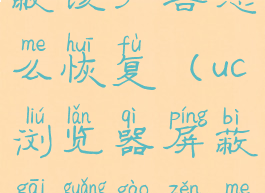 me huī fù
么恢复（uc
liú lǎn qì píng bì
浏览器屏蔽
gāi guǎng gào zěn me